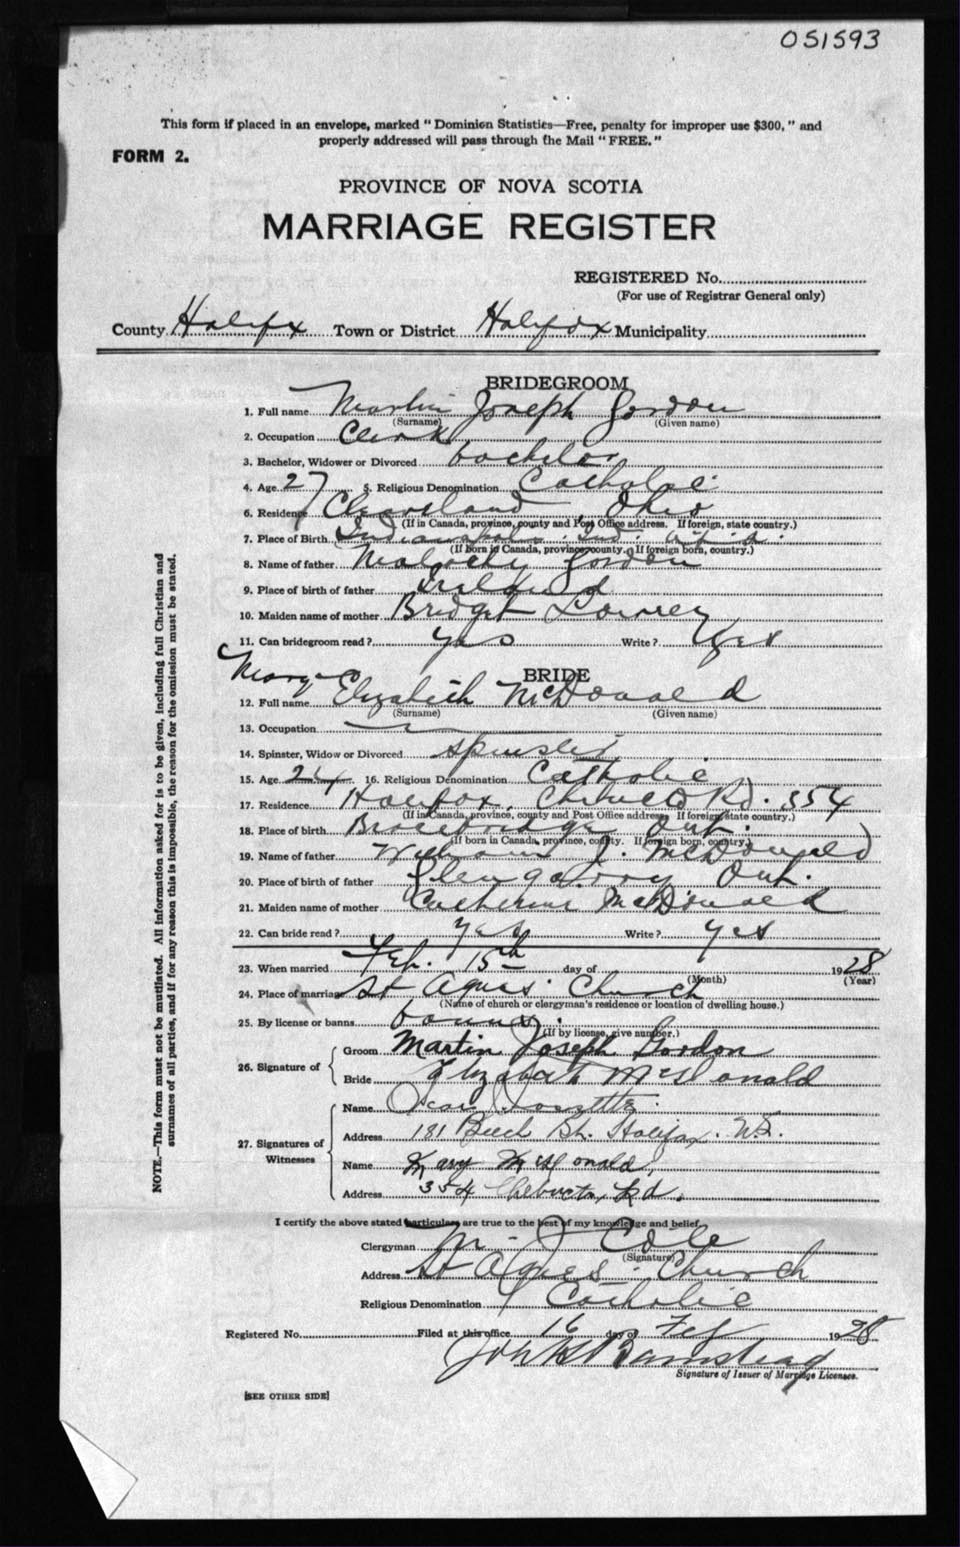 051593
This form if placed in an envelope, marked "Dominion Statistics—Free, penalty for improper use $300," and
properly addressed will pass through the Mail "FREE."
FORM 2.
PROVINCE OF NOVA SCOTIA
MARRIAGE REGISTER
REGISTERED No.
(For use of Registrar General only)
County Halifx Town or District Halifax Municipality
BRIDEGROOM
1. Full name Martin Joseph Gordon
(Surname) (Given name)
2. Occupation Clerk
3. Bachelor, Widower or Divorced bachelor
4. Age 27 5. Religious Denomination Catholic
6. Residence Cleveland, Ohio
(If in Canada, province, county and Post Office address. If foreign, state country.)
7. Place of Birth Indianapolis. Ind.
(If born in Canada, province, county. If foreign born, country.)
8. Name of father Malachy Gordon
9. Place of birth of father Ireland
10. Maiden name of mother Bridget
11. Can bridegroom read? yes Write? yes
BRIDE
12. Full name Mary Elizabeth McDonald
(Surname) (Given name)
13. Occupation
14. Spinster, Widow or Divorced spinster
15. Age 24 16. Religious Denomination Catholic
17. Residence Halifax, Chebucto Rd. 354
(If in Canada, province, county and Post Office address. If foreign, state country.)
18. Place of birth Bracebridge Ont.
(If born in Canada, province, county. If foreign born, country.)
19. Name of father William J. McDonald
20. Place of birth of father Glengarry Ont.
21. Maiden name of mother Catherine McDonald
22. Can bride read? yes Write? yes
23. When married Feb. 15th day of 1928
(Month) (Year)
24. Place of marriage St Agnes Church
(Name of church or clergyman's residence or location of dwelling house.)
25. By license or banns banns
(If by license, give number.)
26. Signature of Groom Martin Joseph Gordon
Bride Elizabeth McDonald
27. Signatures of Witnesses Name Oscar
Address 181 Beech St. Halifax. N.S.
Name Mary McDonald,
Address 354 Chebucto Rd.
I certify the above stated particulars are true to the best of my knowledge and belief.
Clergyman Cole
(Signature)
Address St Agnes Church
Religious Denomination Catholic
Registered No. Filed at this office 16 day of Feb 1928
Signature of Issuer of Marriage Licenses.
[SEE OTHER SIDE]
NOTE.—This form must not be mutilated. All information asked for is to be given, including full Christian and
surnames of all parties, and if for any reason this is impossible, the reason for the omission must be stated.